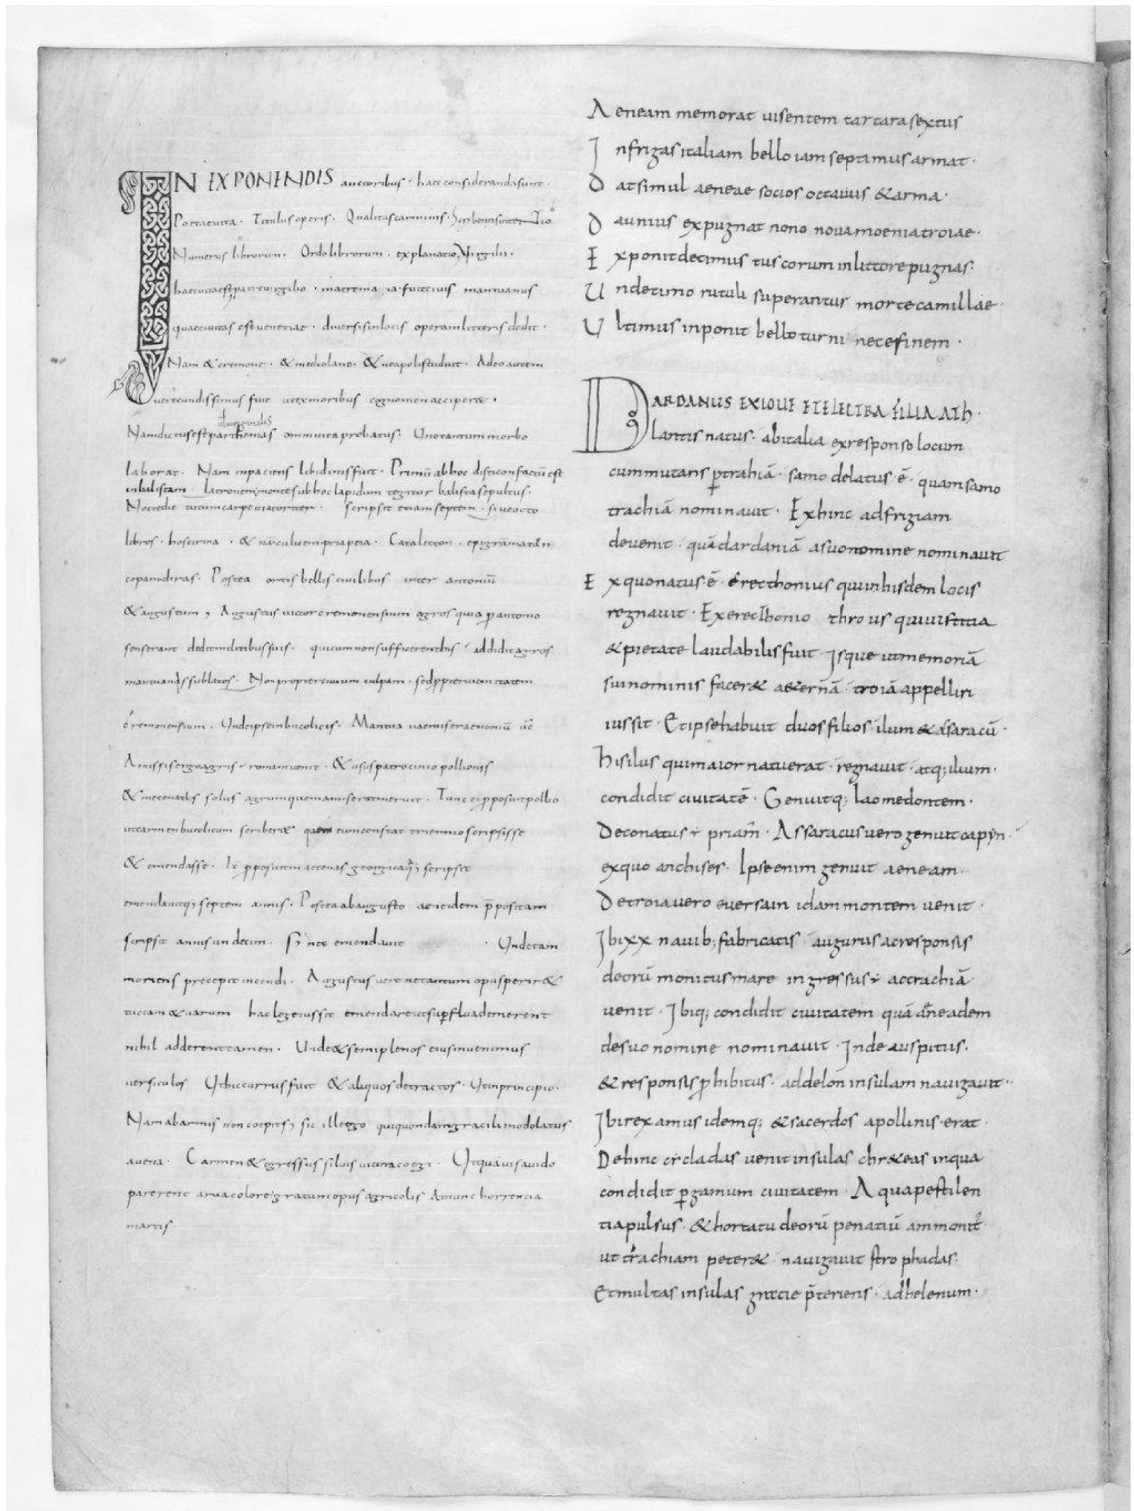 IN EXPONENDIS auctoribus · haec consideranda sunt ·
Poetae uita · Titulus operis · Qualitas carminis · Scribentis intentio
Numerus librorum · Ordo librorum · explanatio, Virgilii ·
haec uita est, patre uirgilio · matre maia · fuit ciuis mantuanus
quae ciuitas est uenetiae · diuersis in locis operam litteris dedit ·
Nam & cremone · & mediolano · & neapoli studuit · Adeo autem
uerecundissimus fuit ut ex moribus cognomen acciperet ·
Nam dictus est parthenias omni uita probatus · Uno tantum morbo
laborat · Nam inpaciens libidinis fuit · Primũ ab hoc disticon factũ est
in balistam latronem; monte sub hoc lapidum tegitur balista sepultus ·
Nocte die tutum carpe uiator iter · scripsit etiam septem siue octo
libros · hos cirina · & na culicem priapeia · Catalecton · epigramaton
copam diras · Postea ortis bellis ciuilibus inter antoniũ
& augustum, Augustus uictor cremonensium agros quia p antonio
senserant dedit militibus suis · qui cum non sufficerent his addidit agros
mantuanos sublatos · Non propter ciuium culpam · sed ppter uicinitatem
cremonensium · Unde ipse in bucolicis · Mantua uae miserae nimiũ
Amissis ergo agris romam uenit · & usus patrocinio pollionis
& mecenatis solus agrum quem amiserat meruit · Tunc ei pposuit pollio
ut carmen bucolicum scriberet quem eum constat triennio scripsisse
& emendasse · It pposuit mecenas georgica q scripsit
emendauitq; septem annis · Postea ab augusto aeneidem ppositam
scripsit annis undecim · S; nec emendauit · Unde eam
moriens precepit incendi · Augustus uero ne tantum opus periret
tuccam & uarum hac lege iussit emendare ut supflua demerent
nihil adderent tamen · Unde & semiplenos eius inuenimus
uersiculos Ut hic currus fuit & aliquos detractos · Ut in principio ·
Nam ab armis non coepit, sic ille ego qui quondam gracili modolatus
auena · Carmen & egressus siluis uicina coegi · Ut quamuis auido
parerent arua colono gratum opus agricolis At nunc horrentia
martis
Aeneam memorat uisentem tartara sextus
Infrigas italiam bello iam septimus armat ·
Dat simul aeneae socios octauus & arma ·
Daunius expugnat nono noua moenia troiae ·
Exponit decimus tuscorum in littore pugnas ·
Undecimo rutuli superantur morte camillae ·
Ultimus inponit bello turni nece finem ·
DARDANUS EX IOUE ET ELECTRA FILIA ATH
lantis natus · ab italia ex responso locum
cummutans p trahiã · samo delatus ẽ · quam samo
trachiã nominauit · Exhinc ad frigiam
deuenit · quã dardaniã a suo nomine nominauit
Ex quo natus ẽ · erecthonius qui in hisdem locis
regnauit · Ex erecthonio throus qui iustitia
& pietate laudabilis fuit · Isque ut memoriã
sui nominis faceret aeternã troiã appellari
iussit · Et ipse habuit duos filios · ilum & assaracũ ·
hisilus qui maior natu erat · regnauit · atq; ilium ·
condidit ciuitatẽ · Genuitq; laomedontem ·
De eo natus ÷ priam · Assaracus uero genuit capyn ·
ex quo anchises · Ipse enim genuit aeneam ·
De troia uero euersa in idam montem uenit ·
Ibi xx nauib; fabricatis auguriis ac responsis
deorũ monitus mare ingressus ÷ ac trachiã
uenit · Ibiq; condidit ciuitatem quã aneadem
de suo nomine nominauit · Inde auspitus ·
& responsis phibitus · ad delon insulam nauigauit ·
Ibi rex amus idemq; & sacerdos apollinis · erat ·
Dehinc cicladas uenit insulas chretas in qua
condidit pgamum ciuitatem · A qua pestilen
tia pulsus · & hortatu deorũ penatiũ ammonit
ut trachiam peteret nauigauit strophadas ·
Et multas insulas grecie pteriens · ad helenum ·